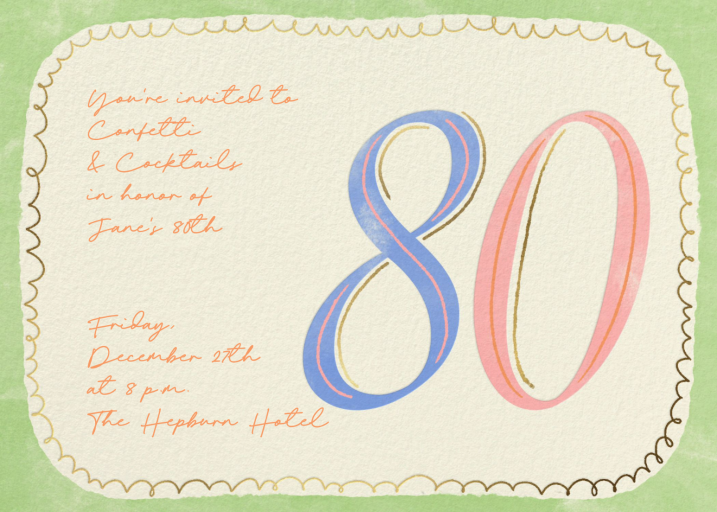 You're invited to
Confetti
& Cocktails
in honor of
Jane's 80th
Friday,
December 27th
at 8 p.m.
The Hepburn Hotel
80